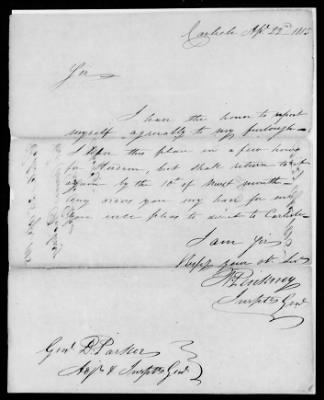 Carlisle Apl 22nd 1815
Sir
I have the honor to report
myself agreeably to my furlough
I leave this place in a few hours
for Hudson, but shall return to it
again by the 10th of next month
Any orders you may have for me
you will please to direct to Carlisle
I am Sir
Resply your Ob. Svt
Pinkney
Inspt. Genl
Genl D Parker
Adjt & Inspt. Genl